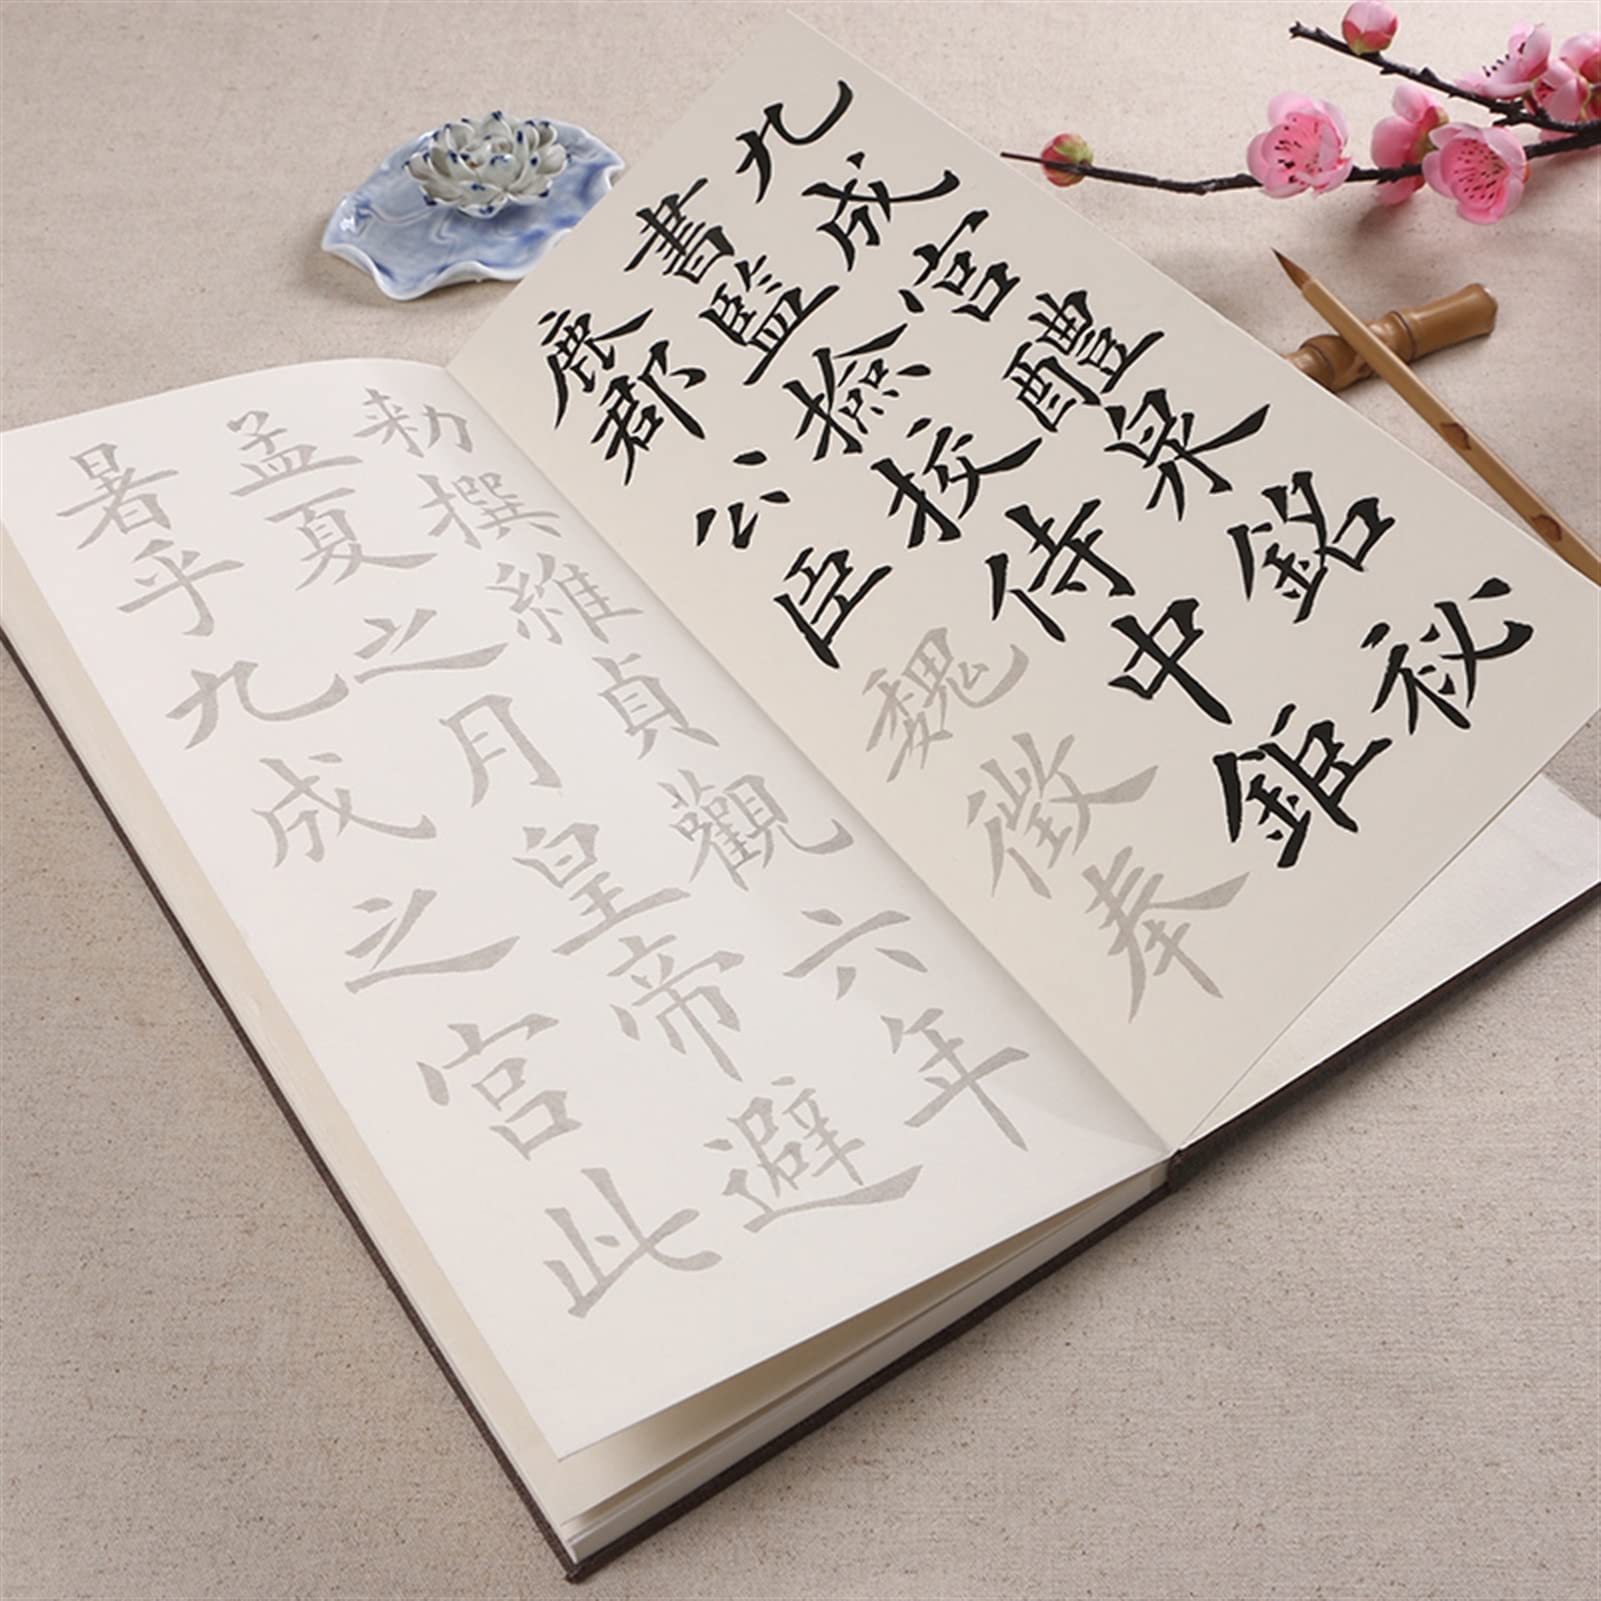 九成宮醴泉銘秘
書監撿挍侍中鉅
鹿郡公臣魏徵奉
勑撰維貞觀六年
孟夏之月皇帝避
暑乎九成之宮此